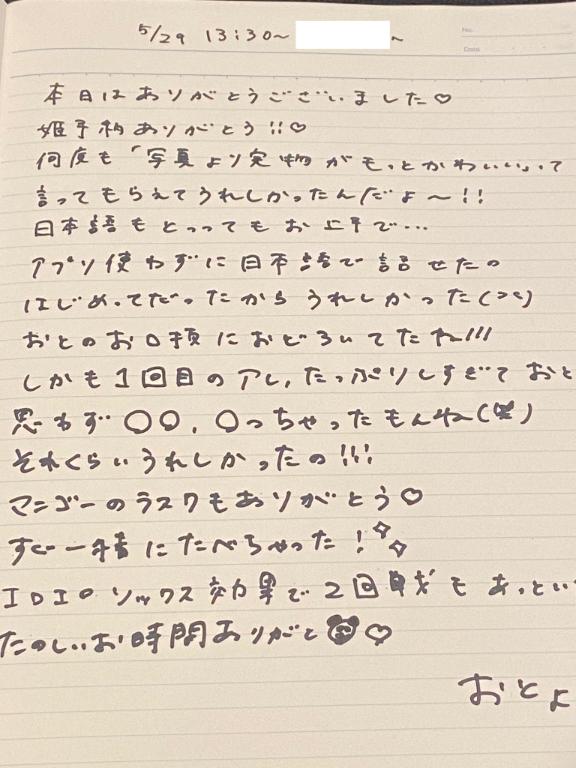 5/29 13:30〜 〜
No.
Date
本日はありがとうございました♡
姫予約ありがとう!!♡
何度も「写真より実物がもっとかわいい」って
言ってもらえてうれしかったんだよ〜!!
日本語もとってもお上手で…
アプリ使わずに日本語で話せたの
はじめってだったからうれしかった(><)
おとのお口項におどろいてたね!!!
しかも1回目のアレ、たっぷりしすぎておと
思わず〇〇、〇っちゃったもんね(笑)
それくらいうれしかったの!!!
マンゴーのラスクもありがとう♡
すぐ一緒にたべちゃった!
エロエロソックス効果で2回戦もあっとい
たのしいお時間ありがと♡
おとよ